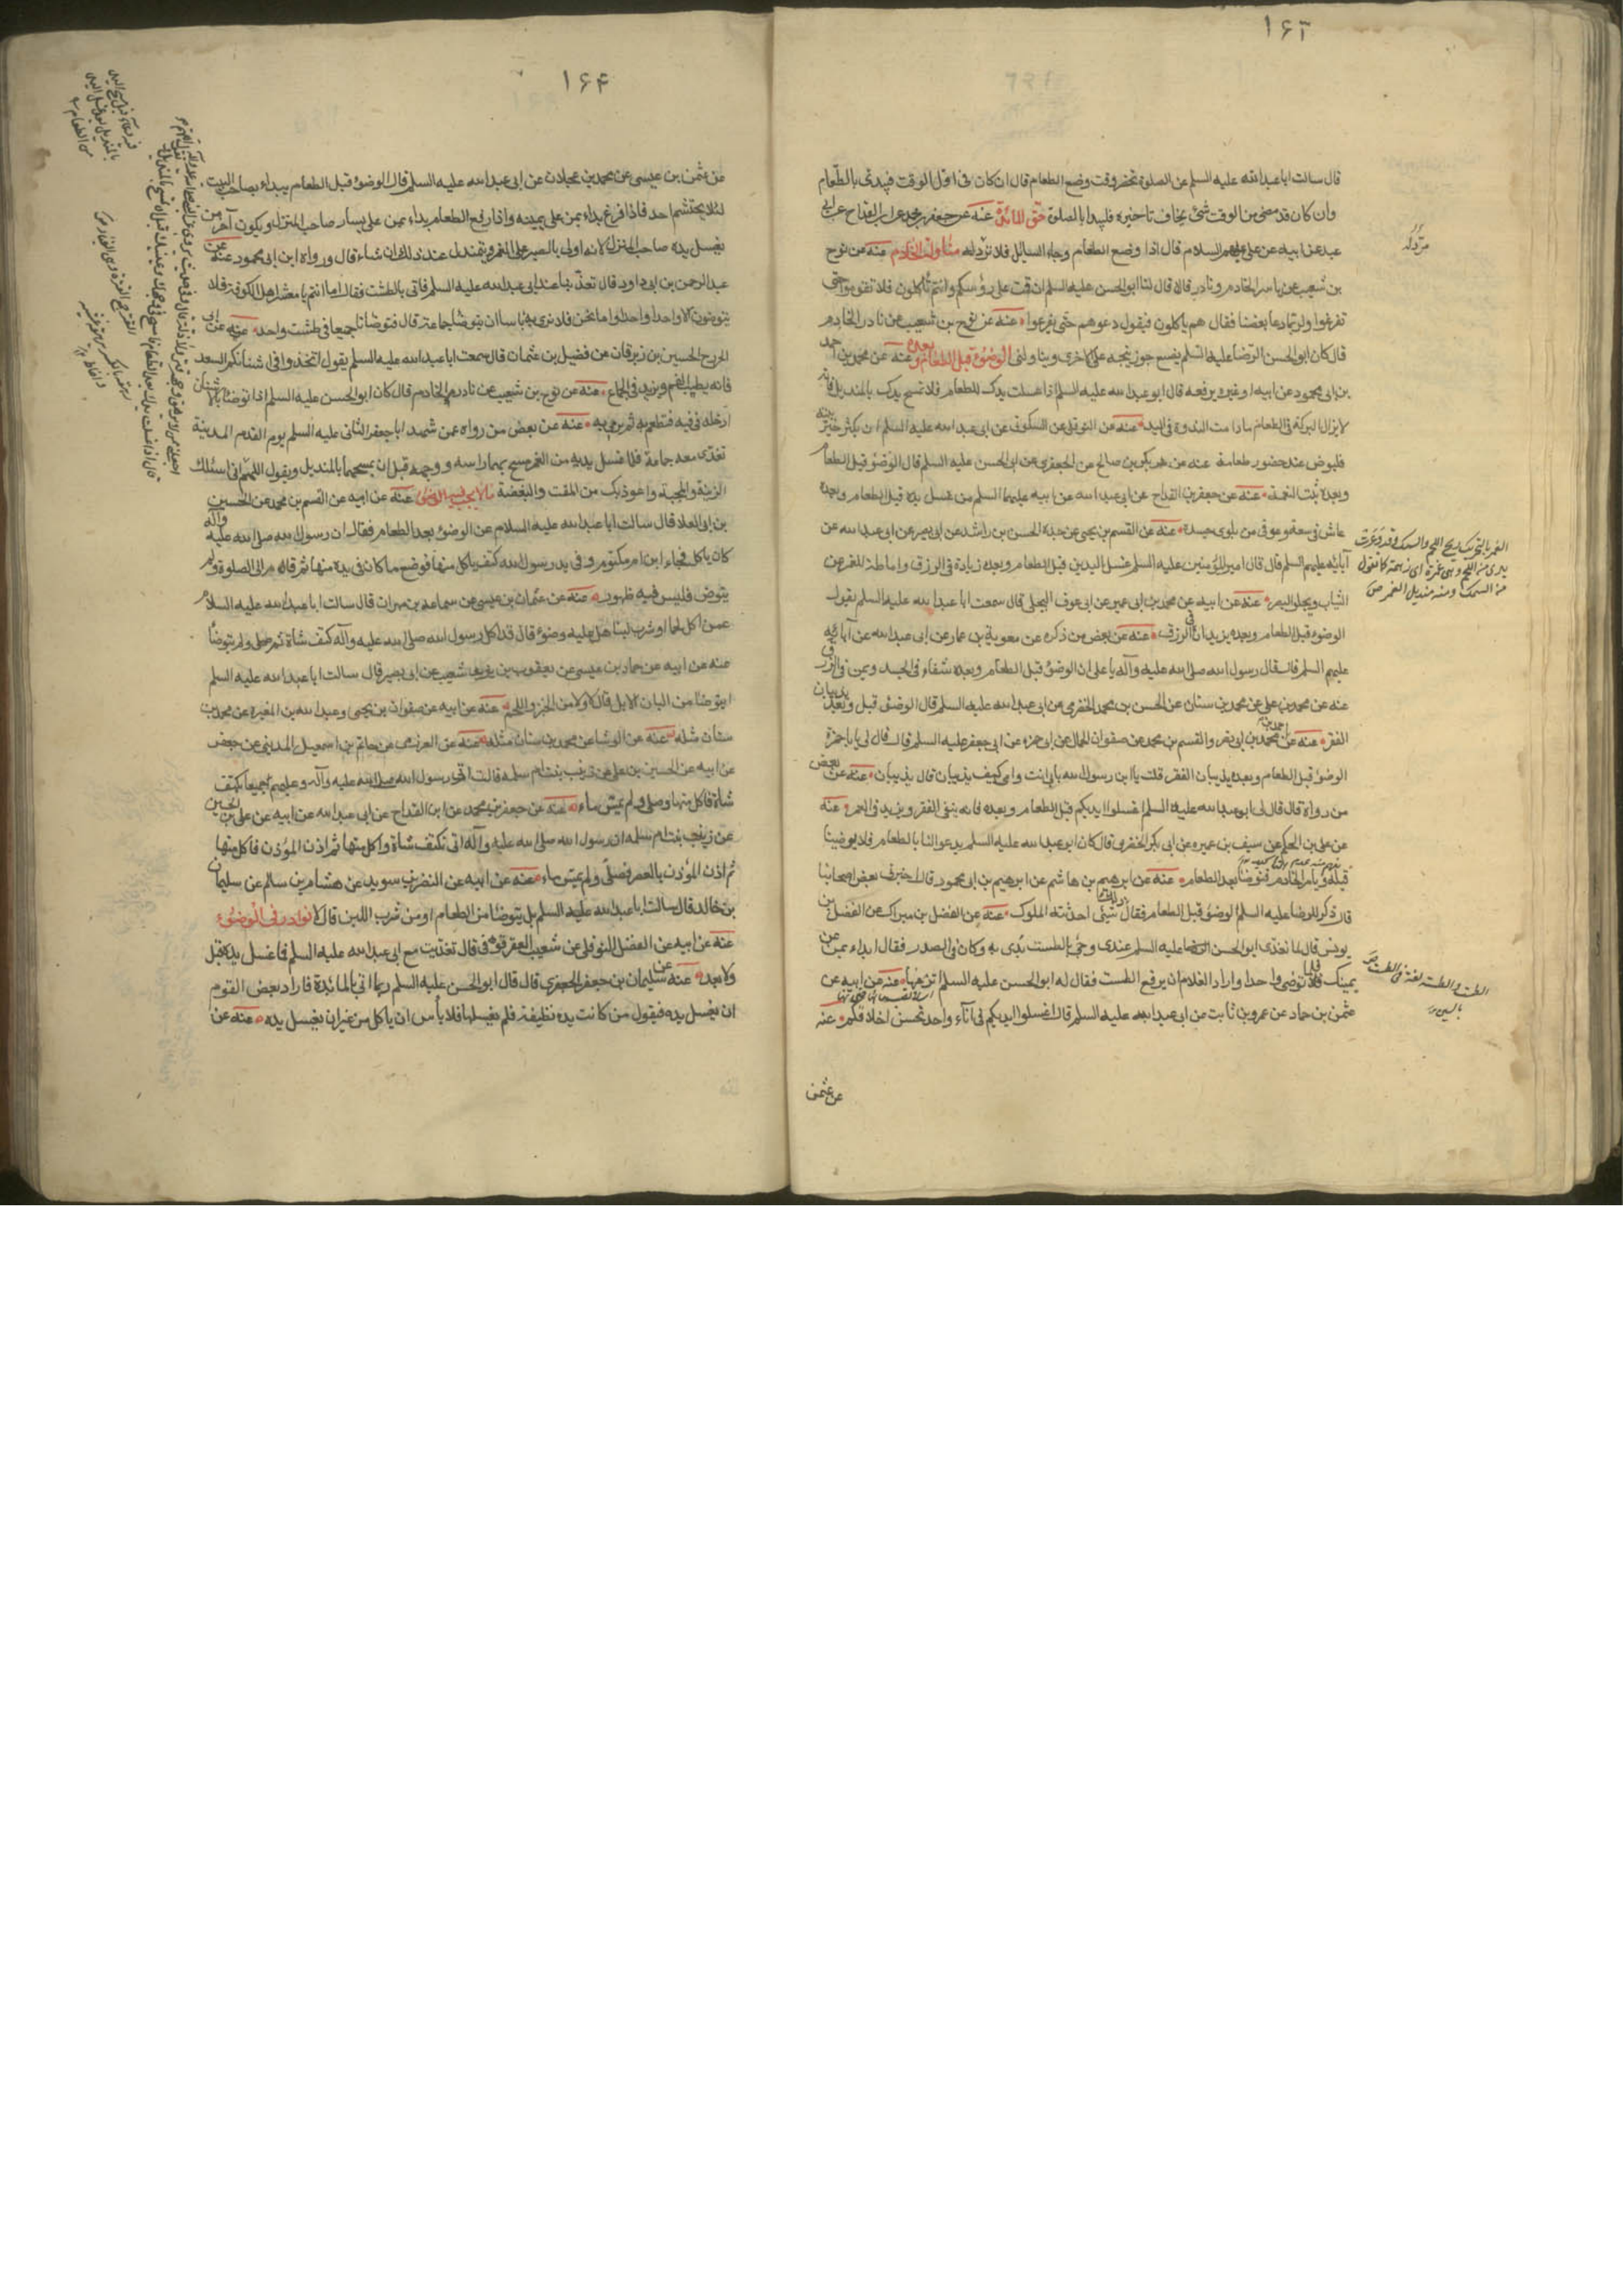 ۱۶۳
قال سالت ابا عبد الله عليه السلم عن الصلوة تحضر وقت وضع الطعام قال ان كان فى اول الوقت فيبدئ بالطعام
وان كان قد مضى من الوقت شئ يخاف تاخيره فليبدا بالصلوة حق المائدة عنه عن جعفر بن محمد عن ابن القداح عن ابى
عبد عن ابيه عن على عليهم السلام قال اذا وضع الطعام وجاء السائل فلا تردّنه مناولة الخادم عنه عن نوح
بن شعيب عن ياسر الخادم ونادر قالا قال لنا ابو الحسن عليه السلم ان قمت على رؤسكم وانتم تأكلون فلا تقوموا حتى
تفرغوا ولربما دعا بعضنا فقال هم ياكلون فيقول دعوهم حتى يفرغوا عنه عن نوح بن شعيب عن نادر الخادم
قال كان ابو الحسن الرضا عليه السلم يضع جوزينجه على الاخرى ويناولنى الوضوء قبل الطعام وبعده عنه عن محمد بن احمد
بن ابى محمود عن ابيه او غيره يرفعه قال ابو عبد الله عليه السلم اذا غسلت يدك للطعام فلا تمسح يدك بالمنديل فانه
لا يزال البركة فى الطعام ما دامت النداوة فى اليد عنه عن النوفلى عن السكونى عن ابى عبد الله عليه السلم ان يكثر خير بيته
فليوض عند حضور طعامه عنه عن بكر بن صالح عن الجعفرى عن ابى الحسن عليه السلم قال الوضوء قبل الطعام
وبعده يثبت النعمة عنه عن جعفر بن القداح عن ابى عبد الله عن ابيه عليهما السلم من غسل يده قبل الطعام وبعده
عاش فى سعة وعوفى من بلوى جسده عنه عن القسم بن يحيى عن جده الحسن بن راشد عن ابى بصير عن ابى عبد الله عن
آبائه عليهم السلم قال قال امير المؤمنين عليه السلم غسل اليدين قبل الطعام وبعده زيادة فى الرزق واماطة للغمر عن
الثياب ويجلو البصر عنه عن ابيه عن محمد بن ابى عمير عن ابى عوف البجلى قال سمعت ابا عبد الله عليه السلم يقول
الوضوء قبل الطعام وبعده يزيدان فى الرزق عنه عن بعض من ذكره عن معوية بن عمار عن ابى عبد الله عن آبائه
عليهم السلم قال قال رسول الله صلى الله عليه وآله يا على ان الوضوء قبل الطعام وبعده شفاء فى الجسد ويمن فى الرزق
عنه عن محمد بن على عن محمد بن سنان عن الحسن بن محمد الحضرمى عن ابى عبد الله عليه السلم قال الوضوء قبل وبعد يذيبان
الفقر عنه عن احمد بن محمد بن ابى نصر والقسم بن محمد عن صفوان الجمال عن ابى حمزه عن ابى جعفر عليه السلم قال قال لى يا با حمزة
الوضوء قبل الطعام وبعده يذيبان الفقر قلت يا ابن رسول الله بابى انت وامى كيف يذيبان قال يذيبان عنه عن بعض
من رواه قال قال لى ابو عبد الله عليه السلم اغسلوا ايديكم قبل الطعام وبعده فانه ينفى الفقر ويزيد فى العمر وعنه
عن على بن الحكم عن سيف بن عميره عن ابى بكر الحضرمى قال كان ابو عبد الله عليه السلم يدعو لنا بالطعام فلا يوضينا
قبله ويأمر الخادم فنتوضا بعد الطعام عنه عن ابرهيم بن هاشم عن ابرهيم بن ابى محمود قال اخبرنى بعض اصحابنا
قال ذكر للرضا عليه السلم الوضوء قبل الطعام فقال ذلك شئ احدثته الملوك عنه عن الفضل بن مبارك عن الفضل بن
يونس قال لما تغذى ابو الحسن الرضا عليه السلم عندى وجئ بالطست بدئ به وكان فى الصدر فقال ابداء بمن عن
يمينك فلما توضى واحد اراد الغلام ان يرفع الطست فقال له ابو الحسن عليه السلم اترعها عنه عن ابيه عن
عثمن بن حماد عن عمرو بن ثابت عن ابى عبد الله عليه السلم قال اغسلوا ايديكم فى اناء واحد تحسن اخلاقكم وعنه
عن عثمن
الغمر بالتحريك ريح اللحم والسمك وقد غمرت
يدى من اللحم وهى غمرة اى زهمة كما تقول
من السمك ومنه منديل الغمر ص
الطست الطس لغة
بالسين
۱۶۴
عن عثمن بن عيسى عن محمد بن عجلان عن ابى عبد الله عليه السلم قال الوضوء قبل الطعام يبداء بصاحب البيت
لئلا يحتشم احد فاذا فرغ بداء بمن على يمينه واذا رفع الطعام بداء بمن على يسار صاحب المنزل ويكون آخر من
يغسل يده صاحب المنزل لانه اولى بالصبر على الغمر ويتمندل عند ذلك ان شاء قال ورواه ابن ابى محمود عنه عن
عبد الرحمن بن ابى داود قال تغدّينا عند ابى عبد الله عليه السلم فاتى بالطشت فقال اما انتم يا معشر اهل الكوفة فلا
يتوضون الا واحدا واحدا واما نحن فلا نرى به باسا ان يتوضا جماعة قال فتوضانا جميعا فى طشت واحد عنه عن ابى
الخزرج الحسين بن زبرقان عن فضيل بن عثمان قال سمعت ابا عبد الله عليه السلم يقول اتخذوا فى اشنانكم السعد
فانه يطيب الفم ويزيد فى الجماع عنه عن نوح بن شعيب عن نادر الخادم قال كان ابو الحسن عليه السلم اذا توضا بالاشنان
ادخله فى فيه فتطعم به ثم يرمى به عنه عن بعض من رواه عمن شهد ابا جعفر الثانى عليه السلم يوم القدم المدينة
تغدّى معه جماعة فلما غسل يديه من الغمر مسح بهما راسه ووجهه قبل ان يمسحهما بالمنديل ويقول اللهم انى اسئلك
الزينة والمحبة واعوذ بك من المقت والبغضة ما لا يجب فيه الوضوء عنه عن ابيه عن القسم بن محمد عن الحسين
بن ابى العلا قال سالت ابا عبد الله عليه السلام عن الوضوء بعد الطعام فقال ان رسول الله صلى الله عليه وآله
كان ياكل فجاء ابن ام مكتوم وفى يد رسول الله كتف ياكل منها فوضع ما كان فى يده منها ثم قام الى الصلوة ولم
يتوض فليس فيه طهور عنه عن عثمان بن عيسى عن سماعة بن مهران قال سالت ابا عبد الله عليه السلام
عمن اكل لحما او شرب لبنا هل عليه وضوء قال قد اكل رسول الله صلى الله عليه وآله كتف شاة ثم صلى ولم يتوضأ
عنه عن ابيه عن حماد بن عيسى عن يعقوب بن شعيب عن ابى بصير قال سالت ابا عبد الله عليه السلم
ايتوضا من البان الابل قال لا ولا من الخبز واللحم عنه عن ابيه عن صفوان بن يحيى وعبد الله بن المغيرة عن محمد بن
سنان مثله عنه عن الوشا عن محمد بن سنان مثله عنه عن العرزمى عن حاتم بن اسمعيل المدينى عن جعفر
عن ابيه عن الحسين بن على عن زينب بنت ام سلمه قالت اتى رسول الله صلى الله عليه وآله وعليهم اجمعين بكتف
شاة فاكل منها وصلى ولم يمس ماء عنه عن جعفر بن محمد عن ابن القداح عن ابى عبد الله عن ابيه عن على بن الحسين
عن زينب بنت ام سلمه ان رسول الله صلى الله عليه وآله اتى بكتف شاة واكل منها ثم اذن المؤذن فاكل منها
ثم اذن المؤذن بالعصر فصلّى ولم يمس ماء عنه عن ابيه عن النضر بن سويد عن هشام بن سالم عن سليمان
بن خالد قال سالت ابا عبد الله عليه السلم هل يتوضا من الطعام او من شرب اللبن قال لا نوادر فى الوضوء
عنه عن ابيه عن الفضل النوفلى عن شعيب العقرقوفى قال تغديت مع ابى عبد الله عليه السلم فما غسل يده قبل
ولا بعد عنه عن سليمان بن جعفر الجعفرى قال قال ابو الحسن عليه السلم ربما اتى بالمائدة فاراد بعض القوم
ان يغسل يده فيقول من كانت يده نظيفة فلم يغسلها فلا بأس ان ياكل من غير ان يغسل يده عنه عن